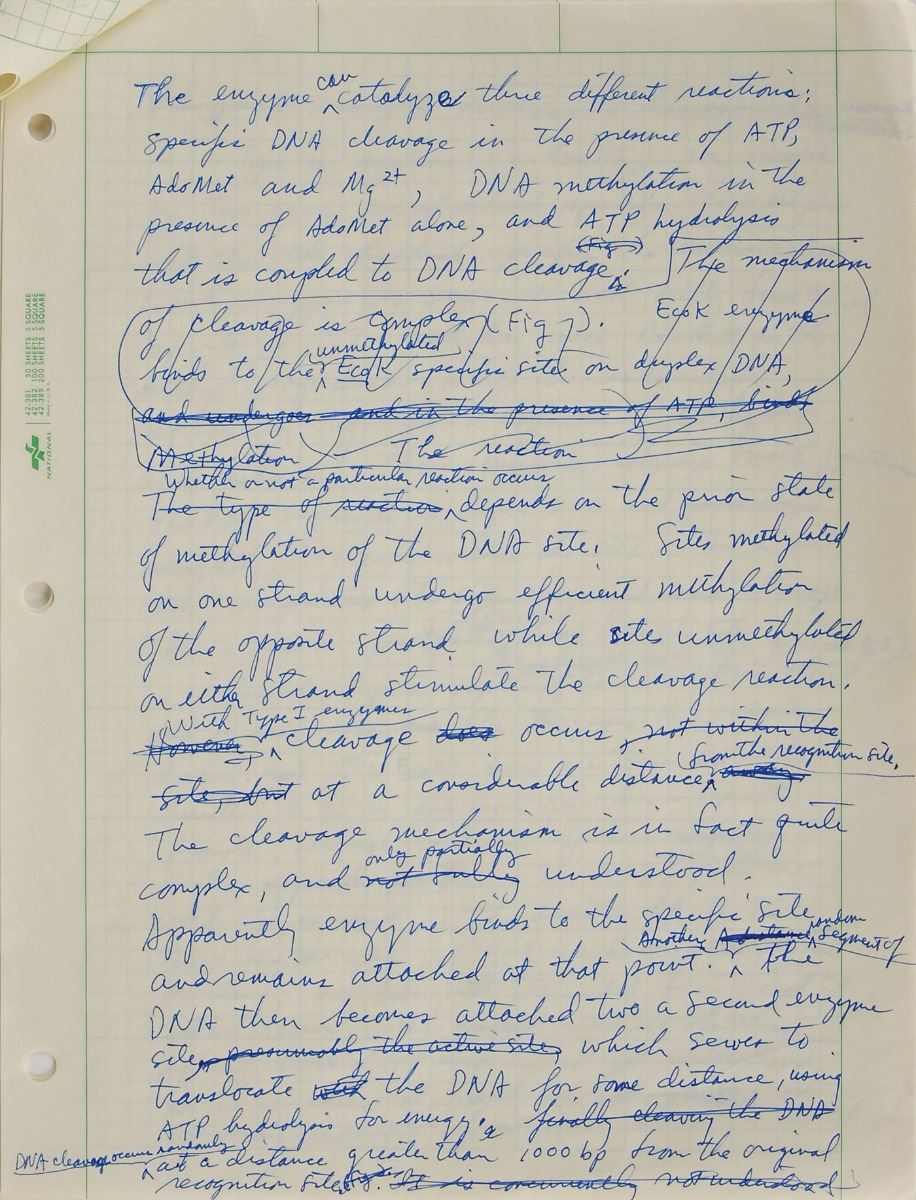 The enzyme can catalyze three different reactions:
specific DNA cleavage in the presence of ATP,
AdoMet and Mg2+, DNA methylation in the
presence of AdoMet alone, and ATP hydrolysis
(Fig )
that is coupled to DNA cleavage. The mechanism
of cleavage is complex (Fig ). EcoK enzyme
unmethylated
binds to the EcoK specific site on duplex DNA,
and undergoes and in the presence of ATP, binds
Methylation The reaction
Whether or not a particular reaction occurs
The type of reaction depends on the prior state
of methylation of the DNA site. Sites methylated
on one strand undergo efficient methylation
of the opposite strand while sites unmethylated
on either strand stimulate the cleavage reaction.
With Type I enzymes
However, cleavage does occurs, not within the
from the recognition site.
site, but at a considerable distance away
The cleavage mechanism is in fact quite
only partially
complex, and not fully understood.
Apparently enzyme binds to the specific site
Another A distance, random segment of
and remains attached at that point. the
DNA then becomes attached two a second enzyme
site, presumably the active site, which serves to
translocate the DNA for some distance, using
ATP hydrolysis for energy. finally cleaving the DNA
DNA cleavage occurs randomly
at a distance greater than 1000 bp from the original
recognition site. It is concurrently not understood
42-381 50 SHEETS 5 SQUARE
42-382 100 SHEETS 5 SQUARE
42-389 200 SHEETS 5 SQUARE
NATIONAL